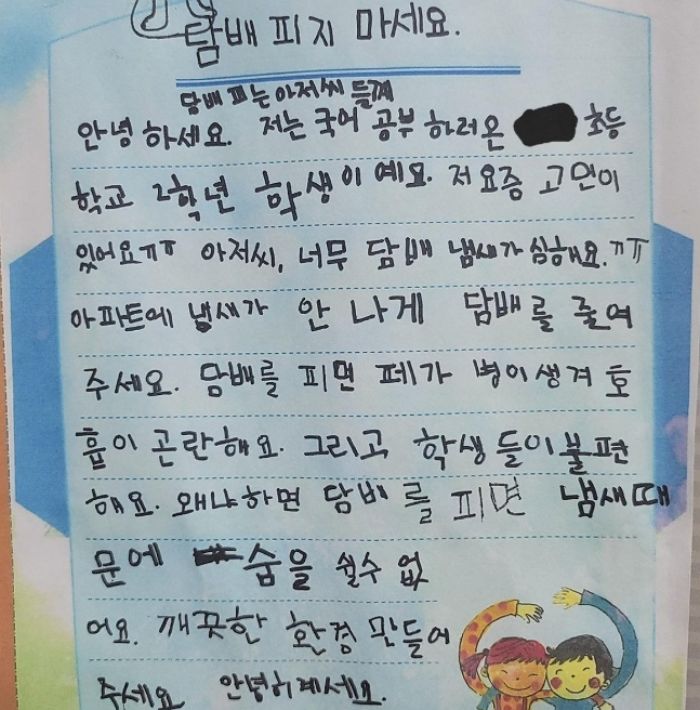 담배 피지 마세요.
담배 피는 아저씨 들께
안녕 하세요. 저는 국어 공부 하러온 초등
학교 2학년 학생이 예요. 저 요즘 고민이
있어요ㅠㅠ 아저씨, 너무 담배 냄새가 심해요.ㅠㅠ
아파트에 냄새가 안 나게 담배를 줄여
주세요. 담배를 피면 페가 병이생겨 호
흡이 곤란해요. 그리고 학생들이불편
해요. 왜냐하면 담배를 피면 냄새때
문에 숨을 쉴수 없
어요. 깨끗한 환경 만들어
주세요 안녕히계세요.